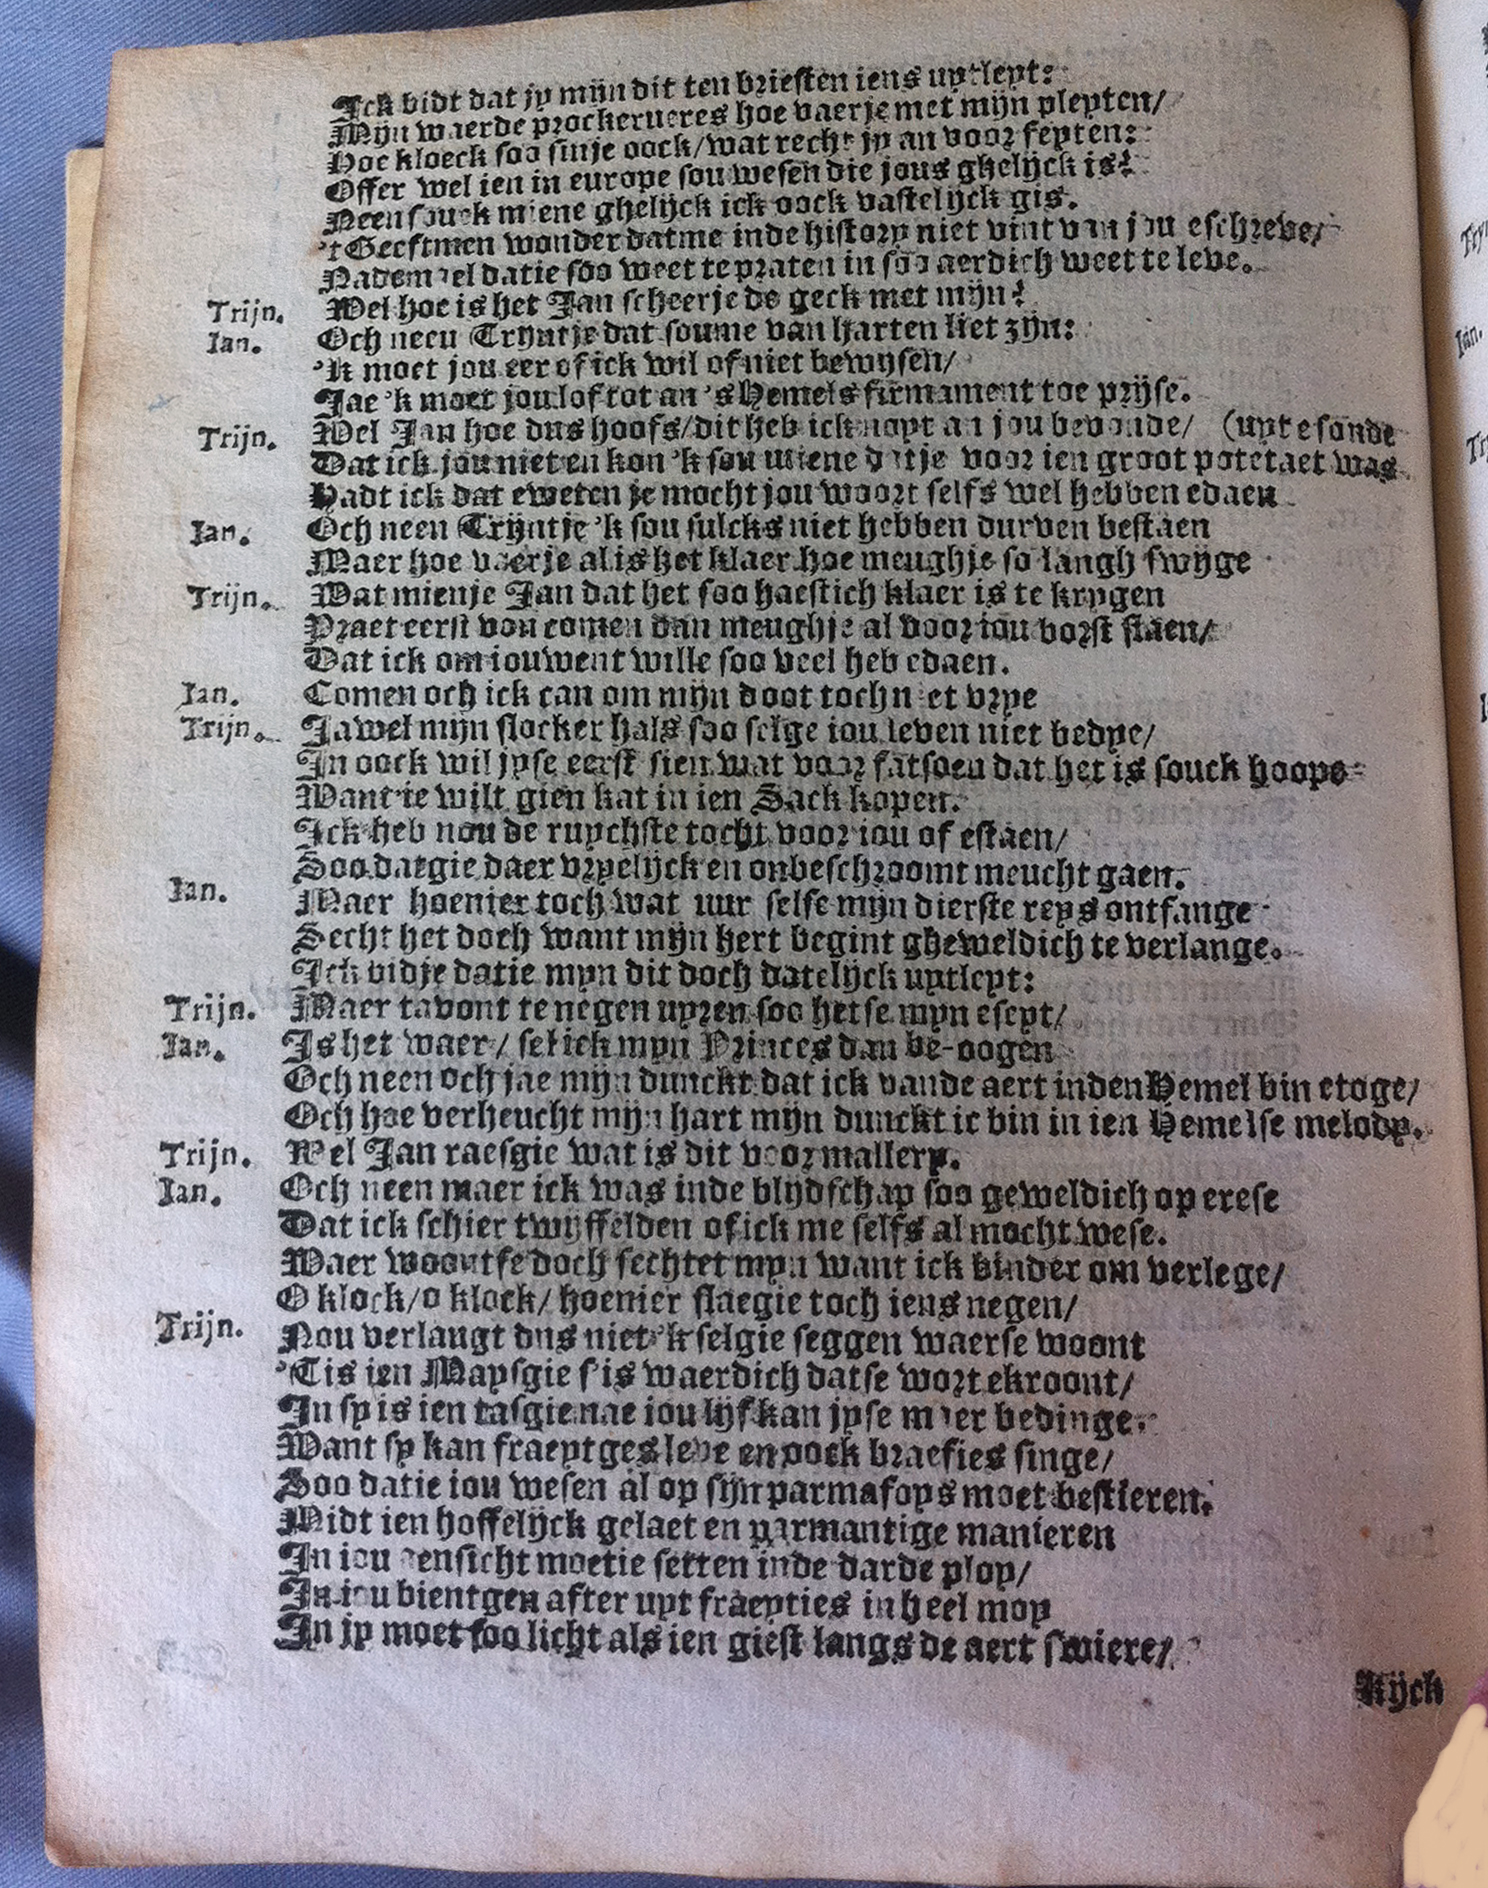 Ick bidt dat jy mijn dit ten briesten iens uytleyt:
Mijn waerde prockerueres hoe vaerje met mijn pleyten/
Hoe kloeck soo sinje oock/wat recht jy an voor feyten:
Offer wel ien in europe sou wesen die jous ghelijck is?
Neen souck miene ghelijck ick oock vastelijck gis.
't Geeftmen wonder datme inde history niet vint van jou eschreve/
Nademael datie soo weet te praten in soo aerdich weet te leve.
Trijn. Wel hoe is het Jan scheerje de geck met mijn?
Ian. Och neen Trijntje dat soume van harten liet zijn:
'k moet jou eer of ick wil of niet bewijsen/
Jae 'k moet jou lof tot an 's Hemels firmament toe prijse.
Trijn. Wel Jan hoe dus hoofs/dit heb ick noyt an jou bevonde/ (uyt esonde
Dat ick jou niet en kon 'k sou miene datje voor ien groot potetaet was
Hadt ick dat eweten je mocht jou woort selfs wel hebben edaen
Ian. Och neen Trijntje 'k sou sulcks niet hebben durven bestaen
Maer hoe vaerje al is het klaer hoe meughje so langh swijge
Trijn. Wat mienje Jan dat het soo haestich klaer is te krygen
Praet eerst von comen dan meughje al voor iou vorst staen/
Dat ick om iouwent wille soo veel heb edaen.
Ian. Comen och ick can om mijn doot toch niet vrye
Trijn. Ja wel mijn slocker hals soo selge iou leven niet bedye/
In oock wil jyse eerst sien wat voor fatsoen dat het is souck hoope
Want ie wilt gien kat in ien Sack kopen.
Ick heb nou de ruychste tocht voor iou of estaen/
Soo datgie daer vryelijck en onbeschroomt meucht gaen.
Ian. Maer hoenier toch wat uur selse mijn dierste reys ontfange
Secht het doch want mijn hert begint gheweldich te verlange.
Ick bidje datie myn dit doch datelijck uytleyt:
Trijn. Maer tavont te negen uyren soo hetse myn eseyt/
Ian. Is het waer/ sel ick myn Princes dan be-oogen
Och neen och jae mijn dunckt dat ick vande aert inden Hemel bin etoge/
Och hoe verheucht mijn hart mijn dunckt ic bin in ien Hemelse melody.
Trijn. Wel Jan raesgie wat is dit voor mallery.
Ian. Och neen maer ick was inde blijdschap soo geweldich op erese
Dat ick schier twijffelden of ick me selfs al mocht wese.
Waer woontse doch sechtet myn want ick binder om verlege/
O klock/o klock/ hoenier slaegie toch iens negen/
Trijn. Nou verlangt dus niet 'k selgie seggen waerse woont
'Tis ien Maysgie s'is waerdich datse wort ekroont/
In sy is ien tasgie nae iou lijf kan jyse maer bedinge.
Want sy kan fraeytges leve en oock braefies singe/
Soo datie iou wesen al op sijn parmafoys moet bestieren.
Midt ien hoffelijck gelaet en parmantige manieren
In iou aensicht moetie setten inde darde ploy/
In iou bientgen after uyt fraeyties in heel moy
In jy moet soo licht als ien giest langs de aert swiere/
Kijck